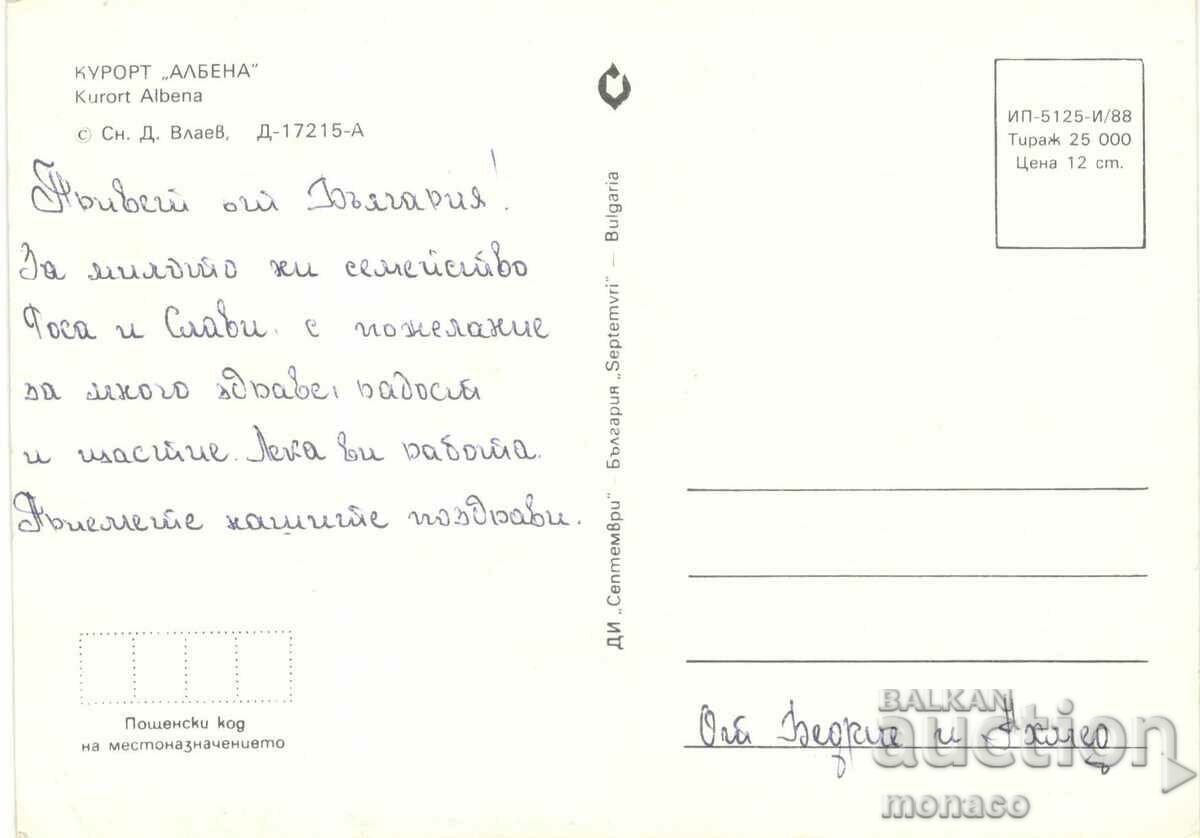 КУРОРТ „АЛБЕНА"
Kurort Albena
© Сн. Д. Влаев, Д-17215-А
Привет от България!
За милото ни семейство
Тоса и Слави. с пожелание
за много здраве, радост
и щастие. Лека ви работа.
Приемете нашите поздрави.
Пощенски код
на местоназначението
ДИ „Септември" — България „Septemvri" — Bulgaria
ИП-5125-И/88
Тираж 25 000
Цена 12 ст.
От и Ахмед
BALKAN
auction
monaco